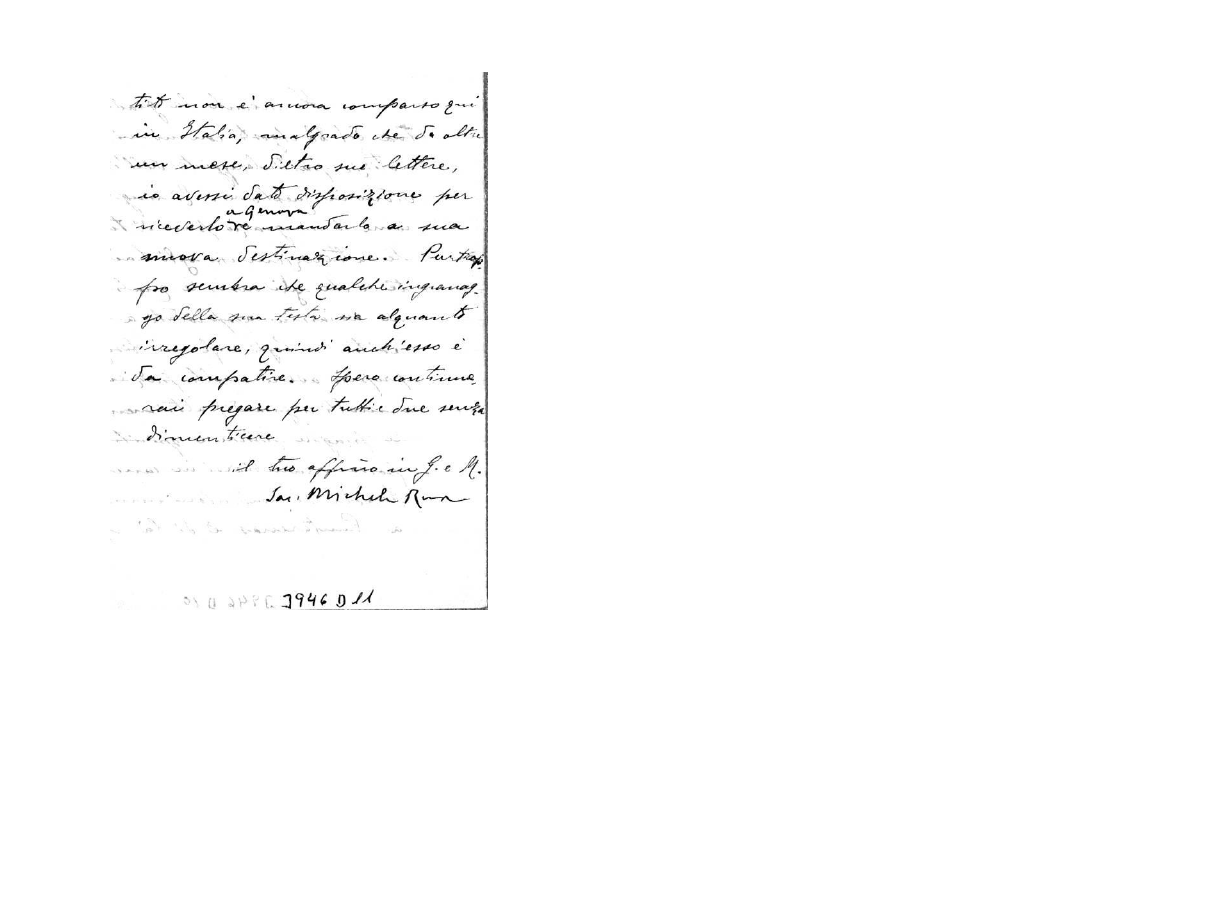 titi non è ancora comparso qui
in Italia, malgrado che da oltre
un mese, dietro sue lettere,
io avessi dato disposizione per
a Genova
riceverlo e mandarlo a sua
nuova destinazione. Purtrop
po sembra che qualche ingranag-
gio della sua testa sia alquanto
irregolare, quindi anch'esso è
da compatire. Spero continue
rai pregare per tutti e due senza
dimenticare
il tuo affmo in G. e M.
Sac. Michele Rua
3946 D 11